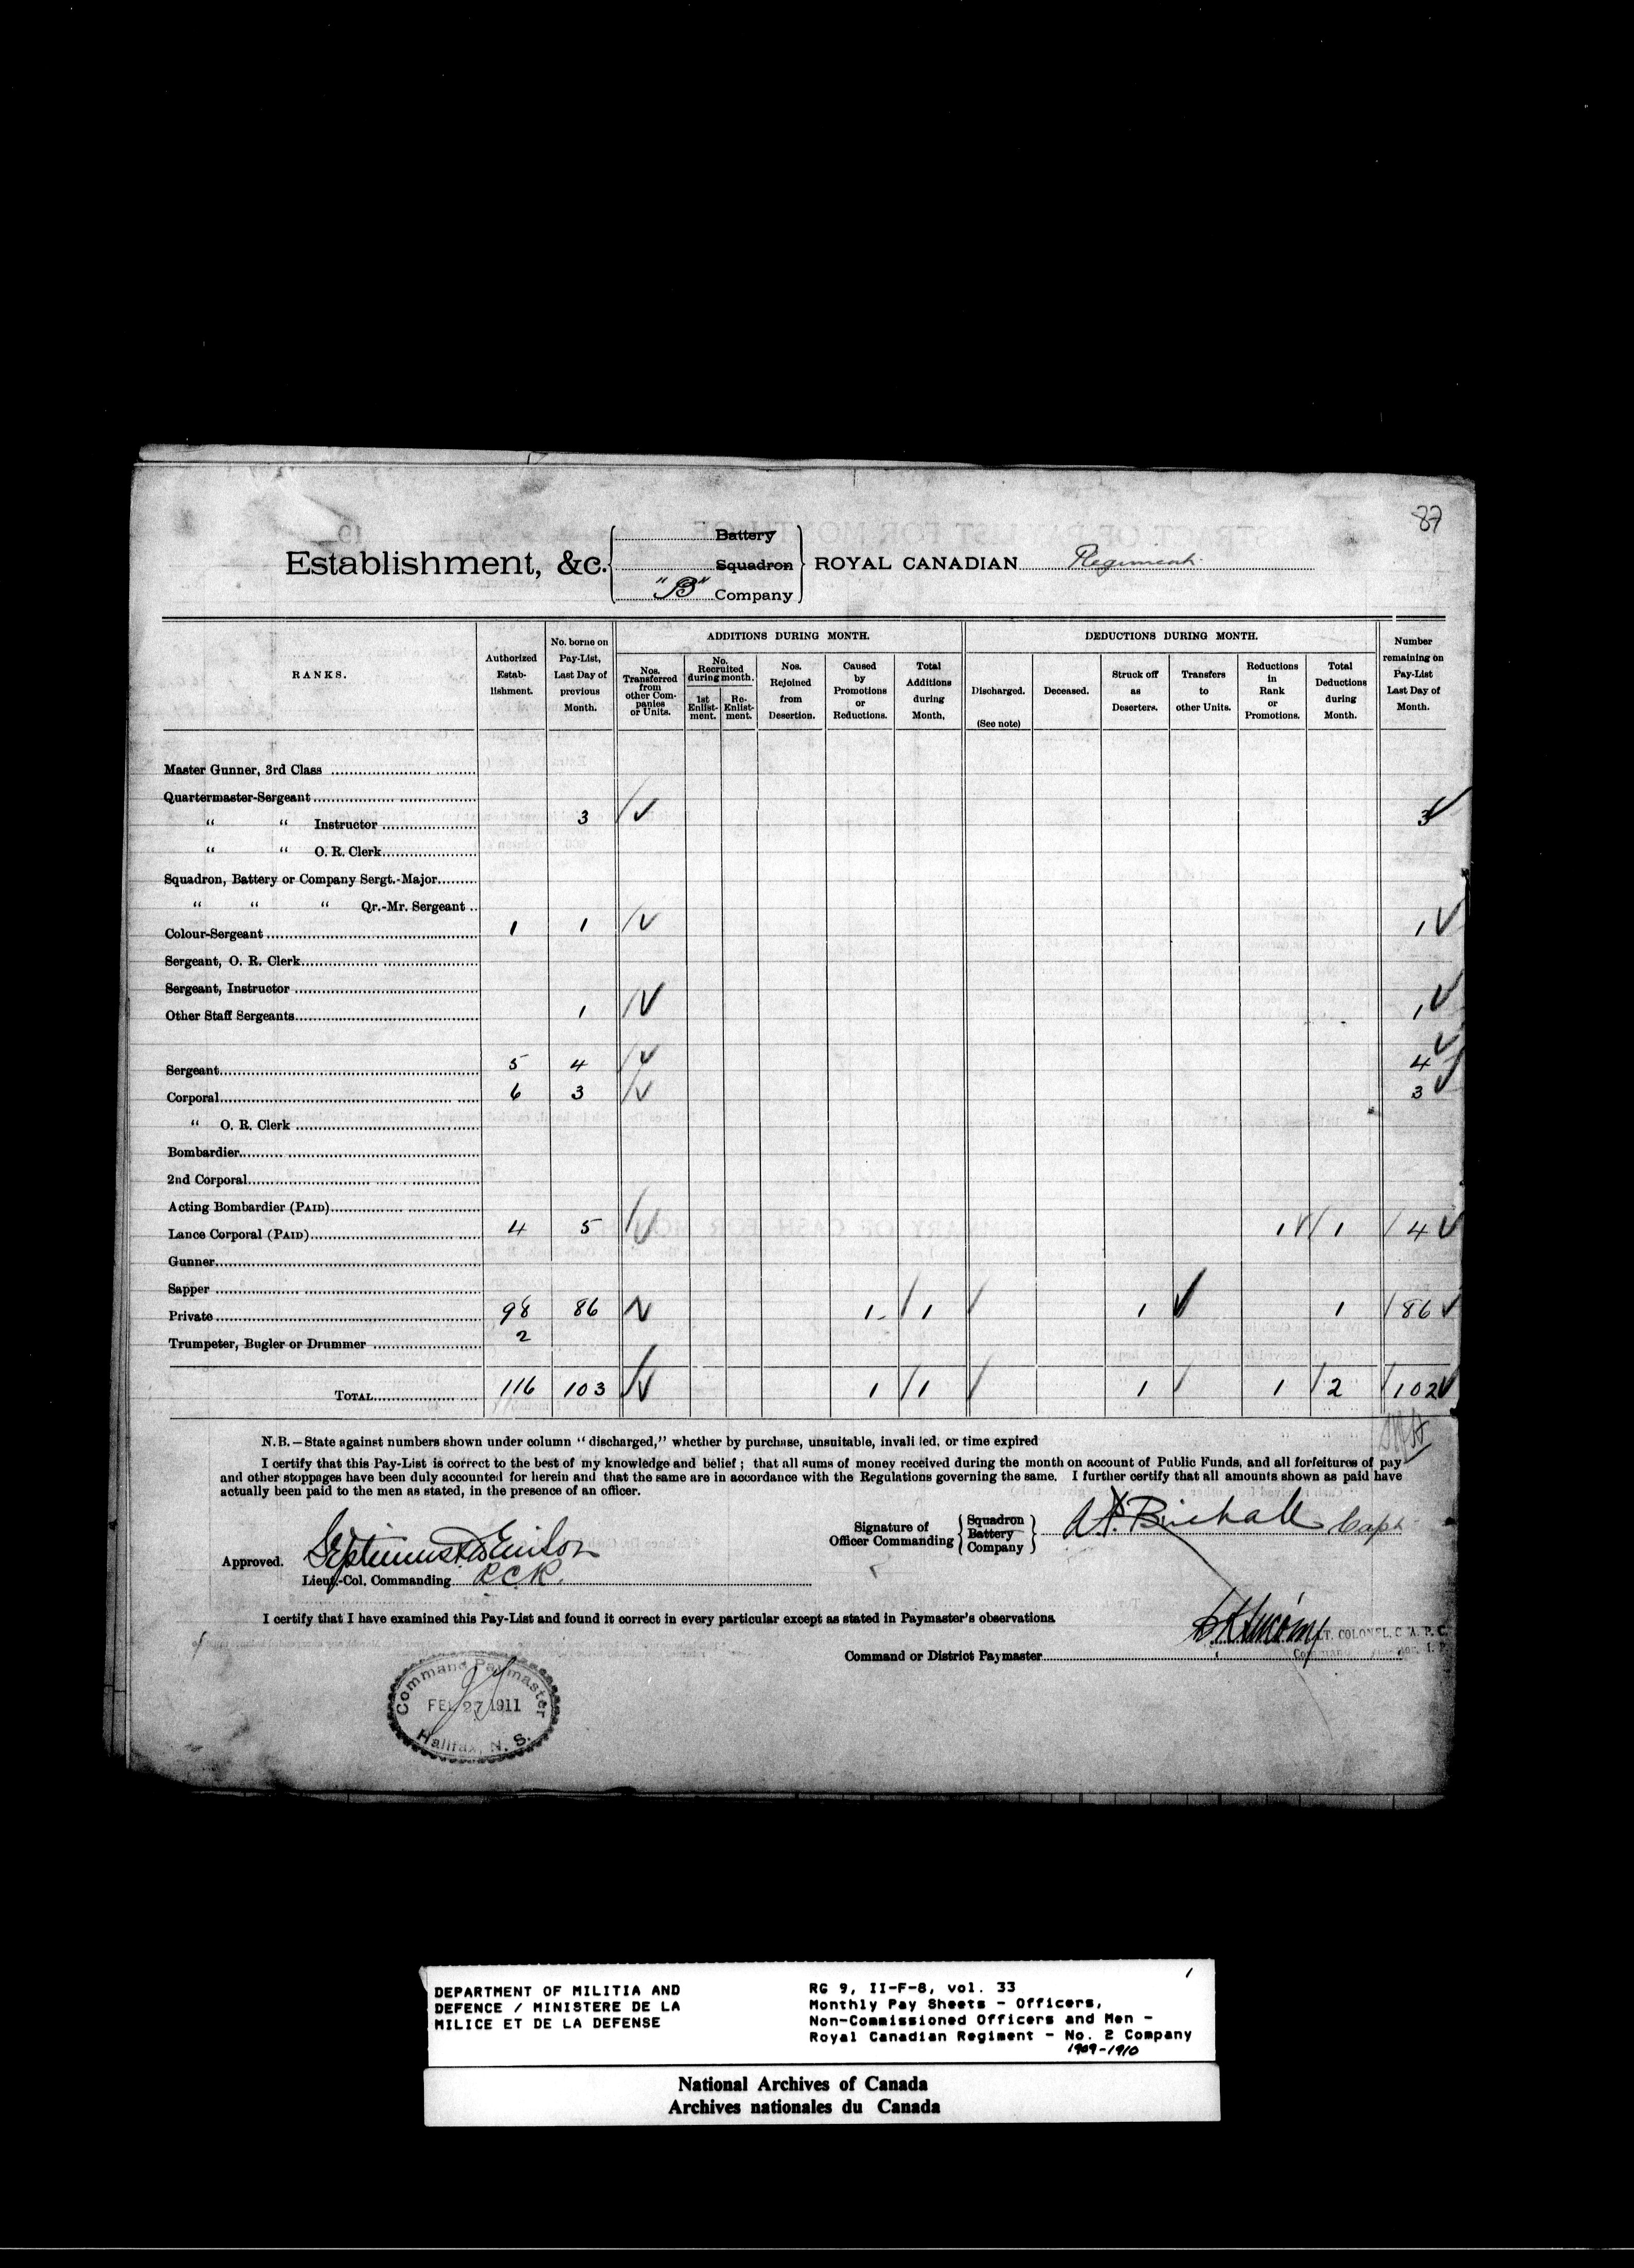 87
Battery
Establishment, &c. Squadron ROYAL CANADIAN Regiment
"B" Company
RANKS.
Authorized Establishment.
No. borne on Pay-List, Last Day of previous Month.
ADDITIONS DURING MONTH.
Nos. Transferred from other Companies or Units.
No. Recruited during month.
1st Enlistment.
Re-Enlistment.
Nos. Rejoined from Desertion.
Caused by Promotions or Reductions.
Total Additions during Month,
DEDUCTIONS DURING MONTH.
Discharged. (See note)
Deceased.
Struck off as Deserters.
Transfers to other Units.
Reductions in Rank or Promotions.
Total Deductions during Month.
Number remaining on Pay-List Last Day of Month.
Master Gunner, 3rd Class
Quartermaster-Sergeant
" " Instructor 3 3
" " O. R. Clerk
Squadron, Battery or Company Sergt.-Major
" " " Qr.-Mr. Sergeant
Colour-Sergeant 1 1 1
Sergeant, O. R. Clerk
Sergeant, Instructor
Other Staff Sergeants 1 1
Sergeant 5 4 4
Corporal 6 3 3
" O. R. Clerk
Bombardier
2nd Corporal
Acting Bombardier (PAID)
Lance Corporal (PAID) 4 5 1 1 4
Gunner
Sapper
Private 98 86 1 1 1 1 86
Trumpeter, Bugler or Drummer 2
TOTAL 116 103 1 1 1 1 2 102
N.B.—State against numbers shown under column "discharged," whether by purchase, unsuitable, invalided, or time expired
I certify that this Pay-List is correct to the best of my knowledge and belief; that all sums of money received during the month on account of Public Funds, and all forfeitures of pay
and other stoppages have been duly accounted for herein and that the same are in accordance with the Regulations governing the same. I further certify that all amounts shown as paid have
actually been paid to the men as stated, in the presence of an officer.
Signature of Officer Commanding Squadron Battery Company Birchall Capt
Approved. Septimus Denison
Lieut.-Col. Commanding R.C.R.
I certify that I have examined this Pay-List and found it correct in every particular except as stated in Paymaster's observations
LT. COLONEL. C. A. P. C.
Command or District Paymaster
Command Paymaster
FEB 27 1911
Halifax, N. S.
1
DEPARTMENT OF MILITIA AND
DEFENCE / MINISTERE DE LA
MILICE ET DE LA DEFENSE
RG 9, II-F-8, vol. 33
Monthly Pay Sheets - Officers,
Non-Commissioned Officers and Men -
Royal Canadian Regiment - No. 2 Company
1909-1910
National Archives of Canada
Archives nationales du Canada